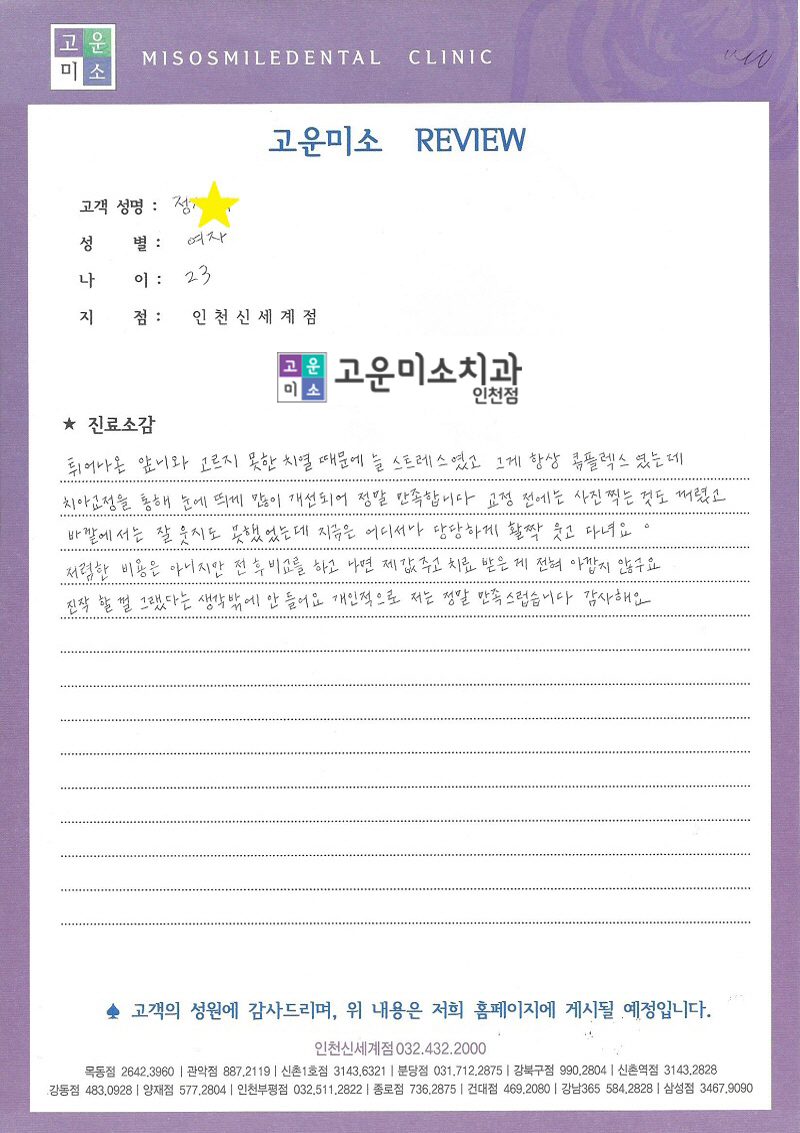 고운
미소
MISOSMILEDENTAL CLINIC
고운미소 REVIEW
고객 성명 : 정
성 별 : 여자
나 이 : 23
지 점 : 인천신세계점
고운
미소
고운미소치과
인천점
★ 진료소감
튀어나온 앞니와 고르지 못한 치열 때문에 늘 스트레스였고 그게 항상 콤플렉스 였는데
치아교정을 통해 눈에 띄게 많이 개선되어 정말 만족합니다 교정 전에는 사진찍는 것도 꺼렸고
바깥에서는 잘 웃지도 못했었는데 지금은 어디서나 당당하게 활짝 웃고 다녀요。
저렴한 비용은 아니지만 전후비교를 하고 나면 제값주고 치료 받은게 전혀 아깝지 않구요
진작 할 껄 그랬다는 생각밖에 안 들어요 개인적으로 저는 정말 만족스럽습니다 감사해요
♠ 고객의 성원에 감사드리며, 위 내용은 저희 홈페이지에 게시될 예정입니다.
인천신세계점 032.432.2000
목동점 2642.3960 | 관악점 887.2119 | 신촌1호점 3143.6321 | 분당점 031.712.2875 | 강북구점 990.2804 | 신촌역점 3143.2828
강동점 483.0928 | 양재점 577.2804 | 인천부평점 032.511.2822 | 종로점 736.2875 | 건대점 469.2080 | 강남365 584.2828 | 삼성점 3467.9090